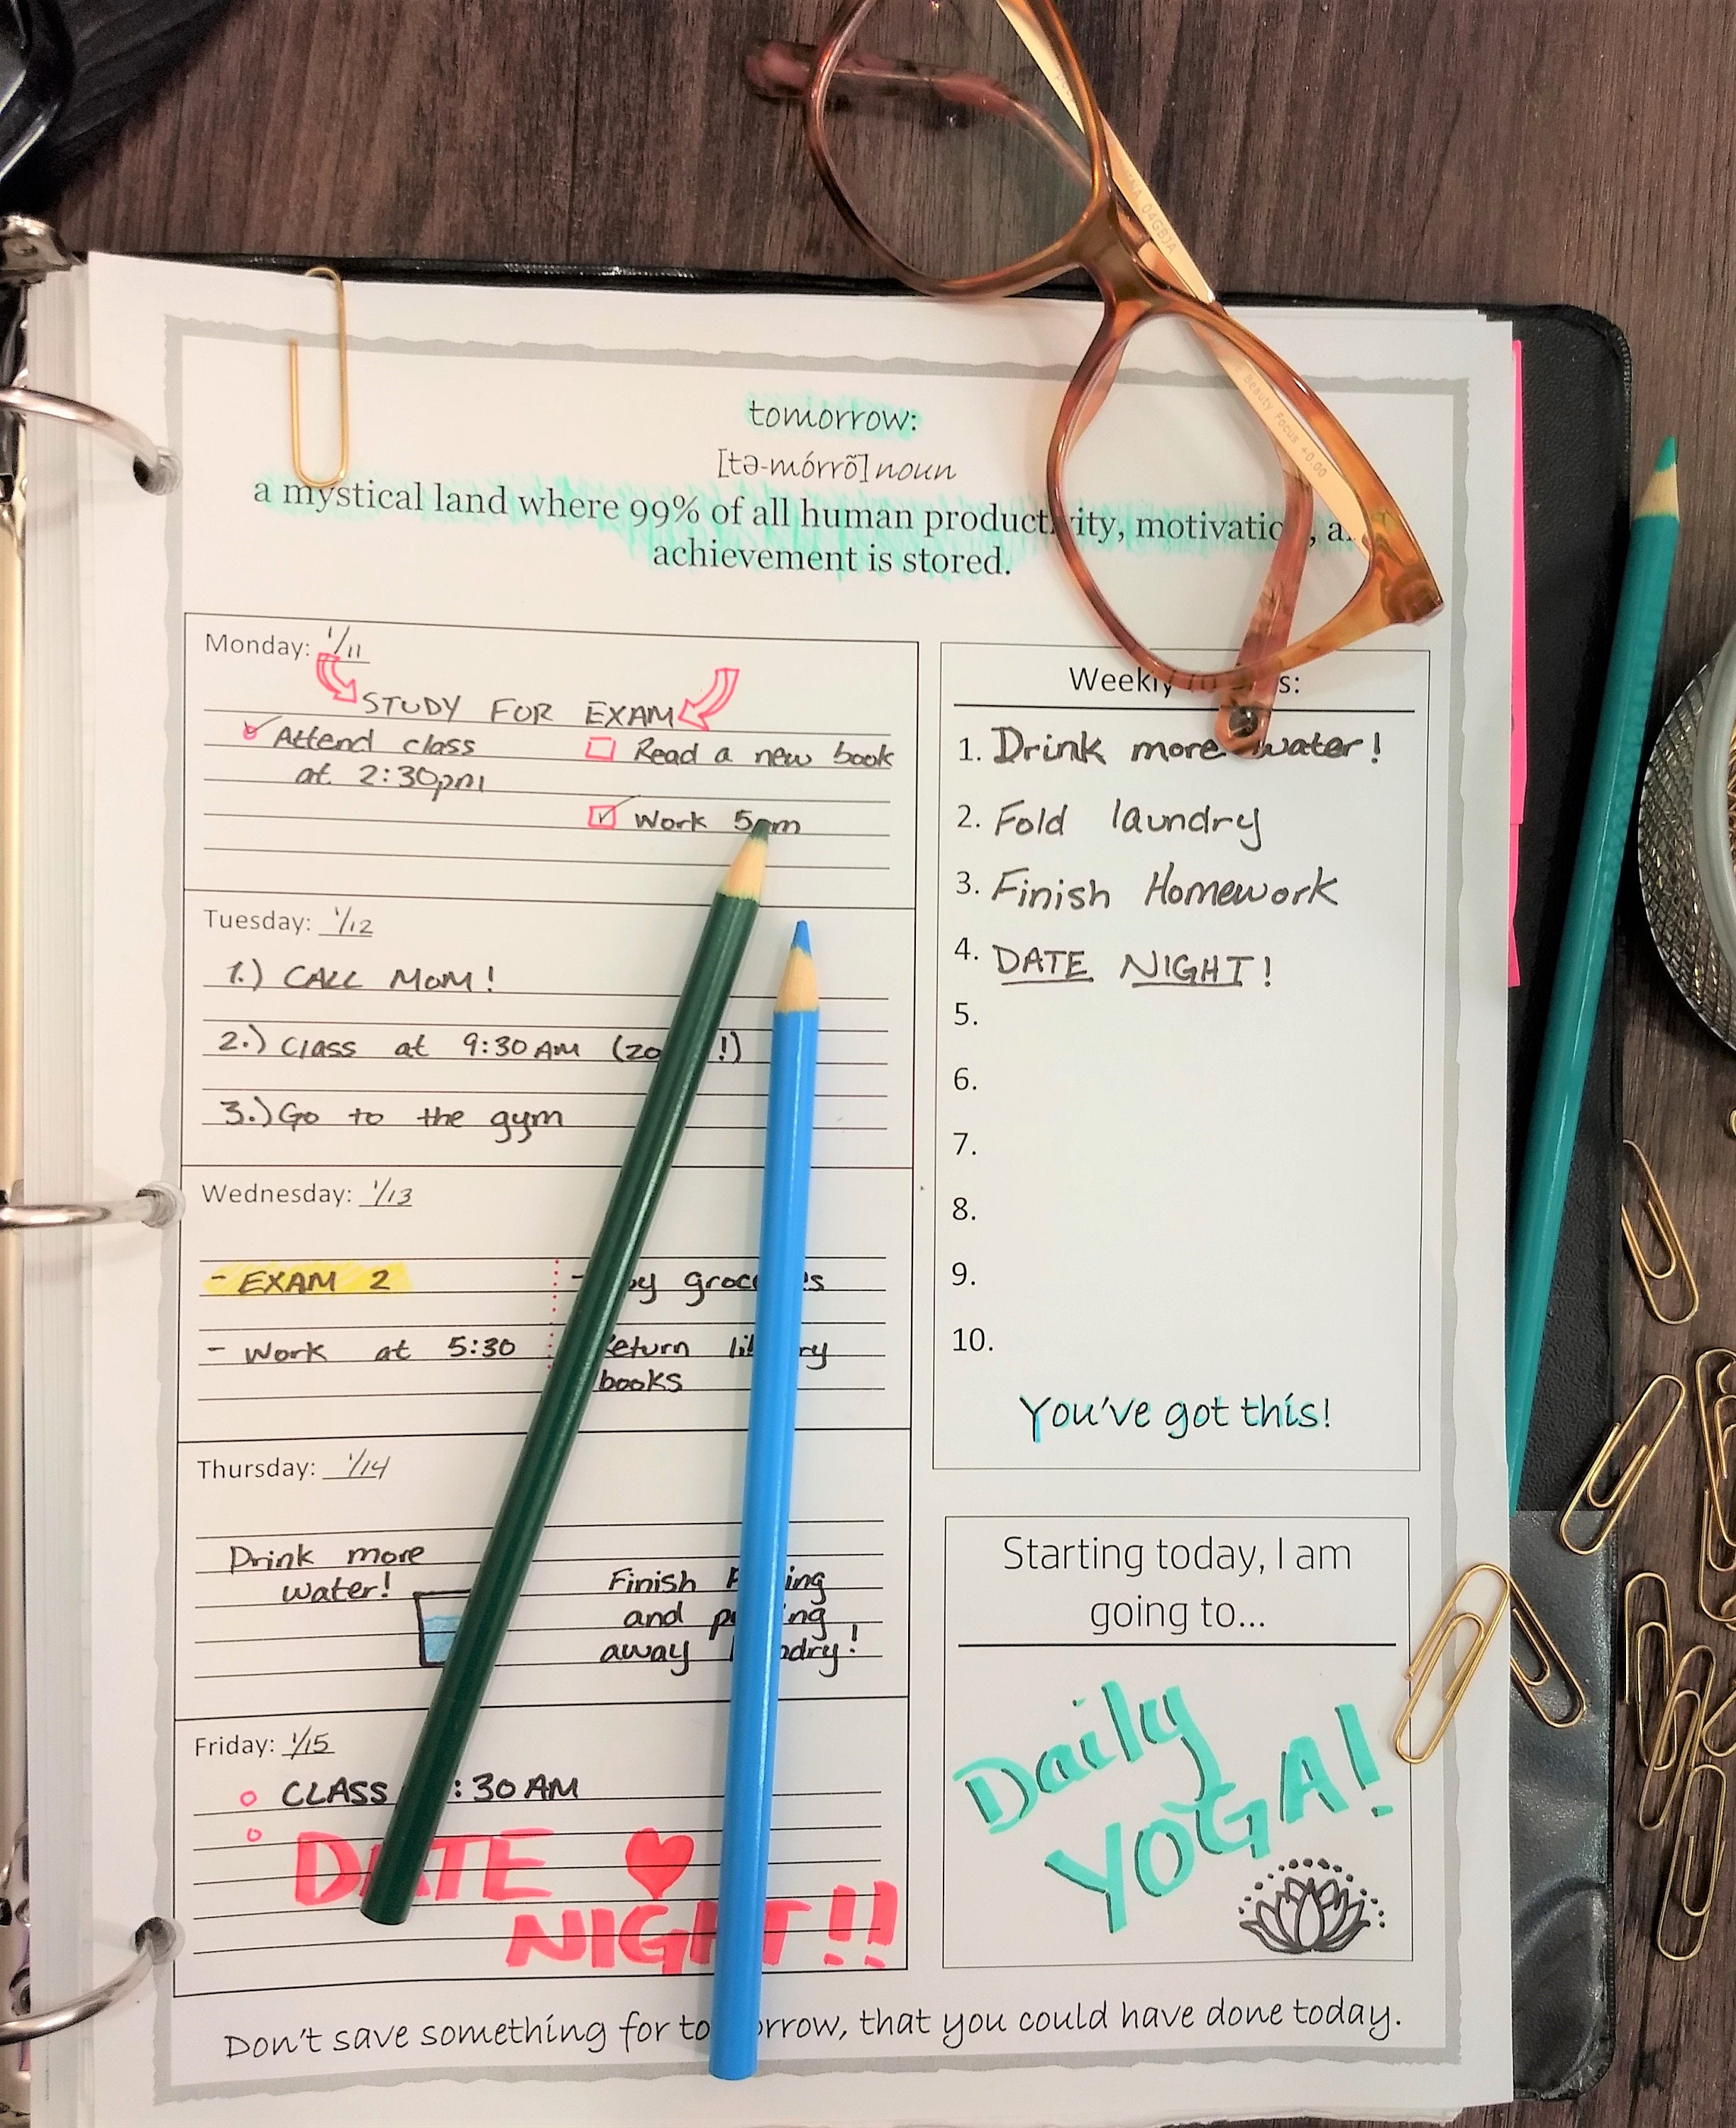 04GBJA
Beauty Focus +0.00
tomorrow:
[tə-mórrõ] noun
a mystical land where 99% of all human productivity, motivation,
achievement is stored.
Monday: 1/11
STUDY FOR EXAM
Attend class
at 2:30pm
Read a new book
Work 5pm
Tuesday: 1/12
1.) CALL MOM!
2.) Class at 9:30 AM (zo !)
3.) Go to the gym
Wednesday: 1/13
- EXAM 2
- Work at 5:30
- Buy groceries
Return library
books
Thursday: 1/14
Drink more
water!
Finish
and putting
away laundry!
Friday: 1/15
CLASS :30 AM
DATE
NIGHT!!
Weekly
1. Drink more water!
2. Fold laundry
3. Finish Homework
4. DATE NIGHT!
5.
6.
7.
8.
9.
10.
You've got this!
Starting today, I am
going to...
Daily
YOGA!
Don't save something for tomorrow, that you could have done today.